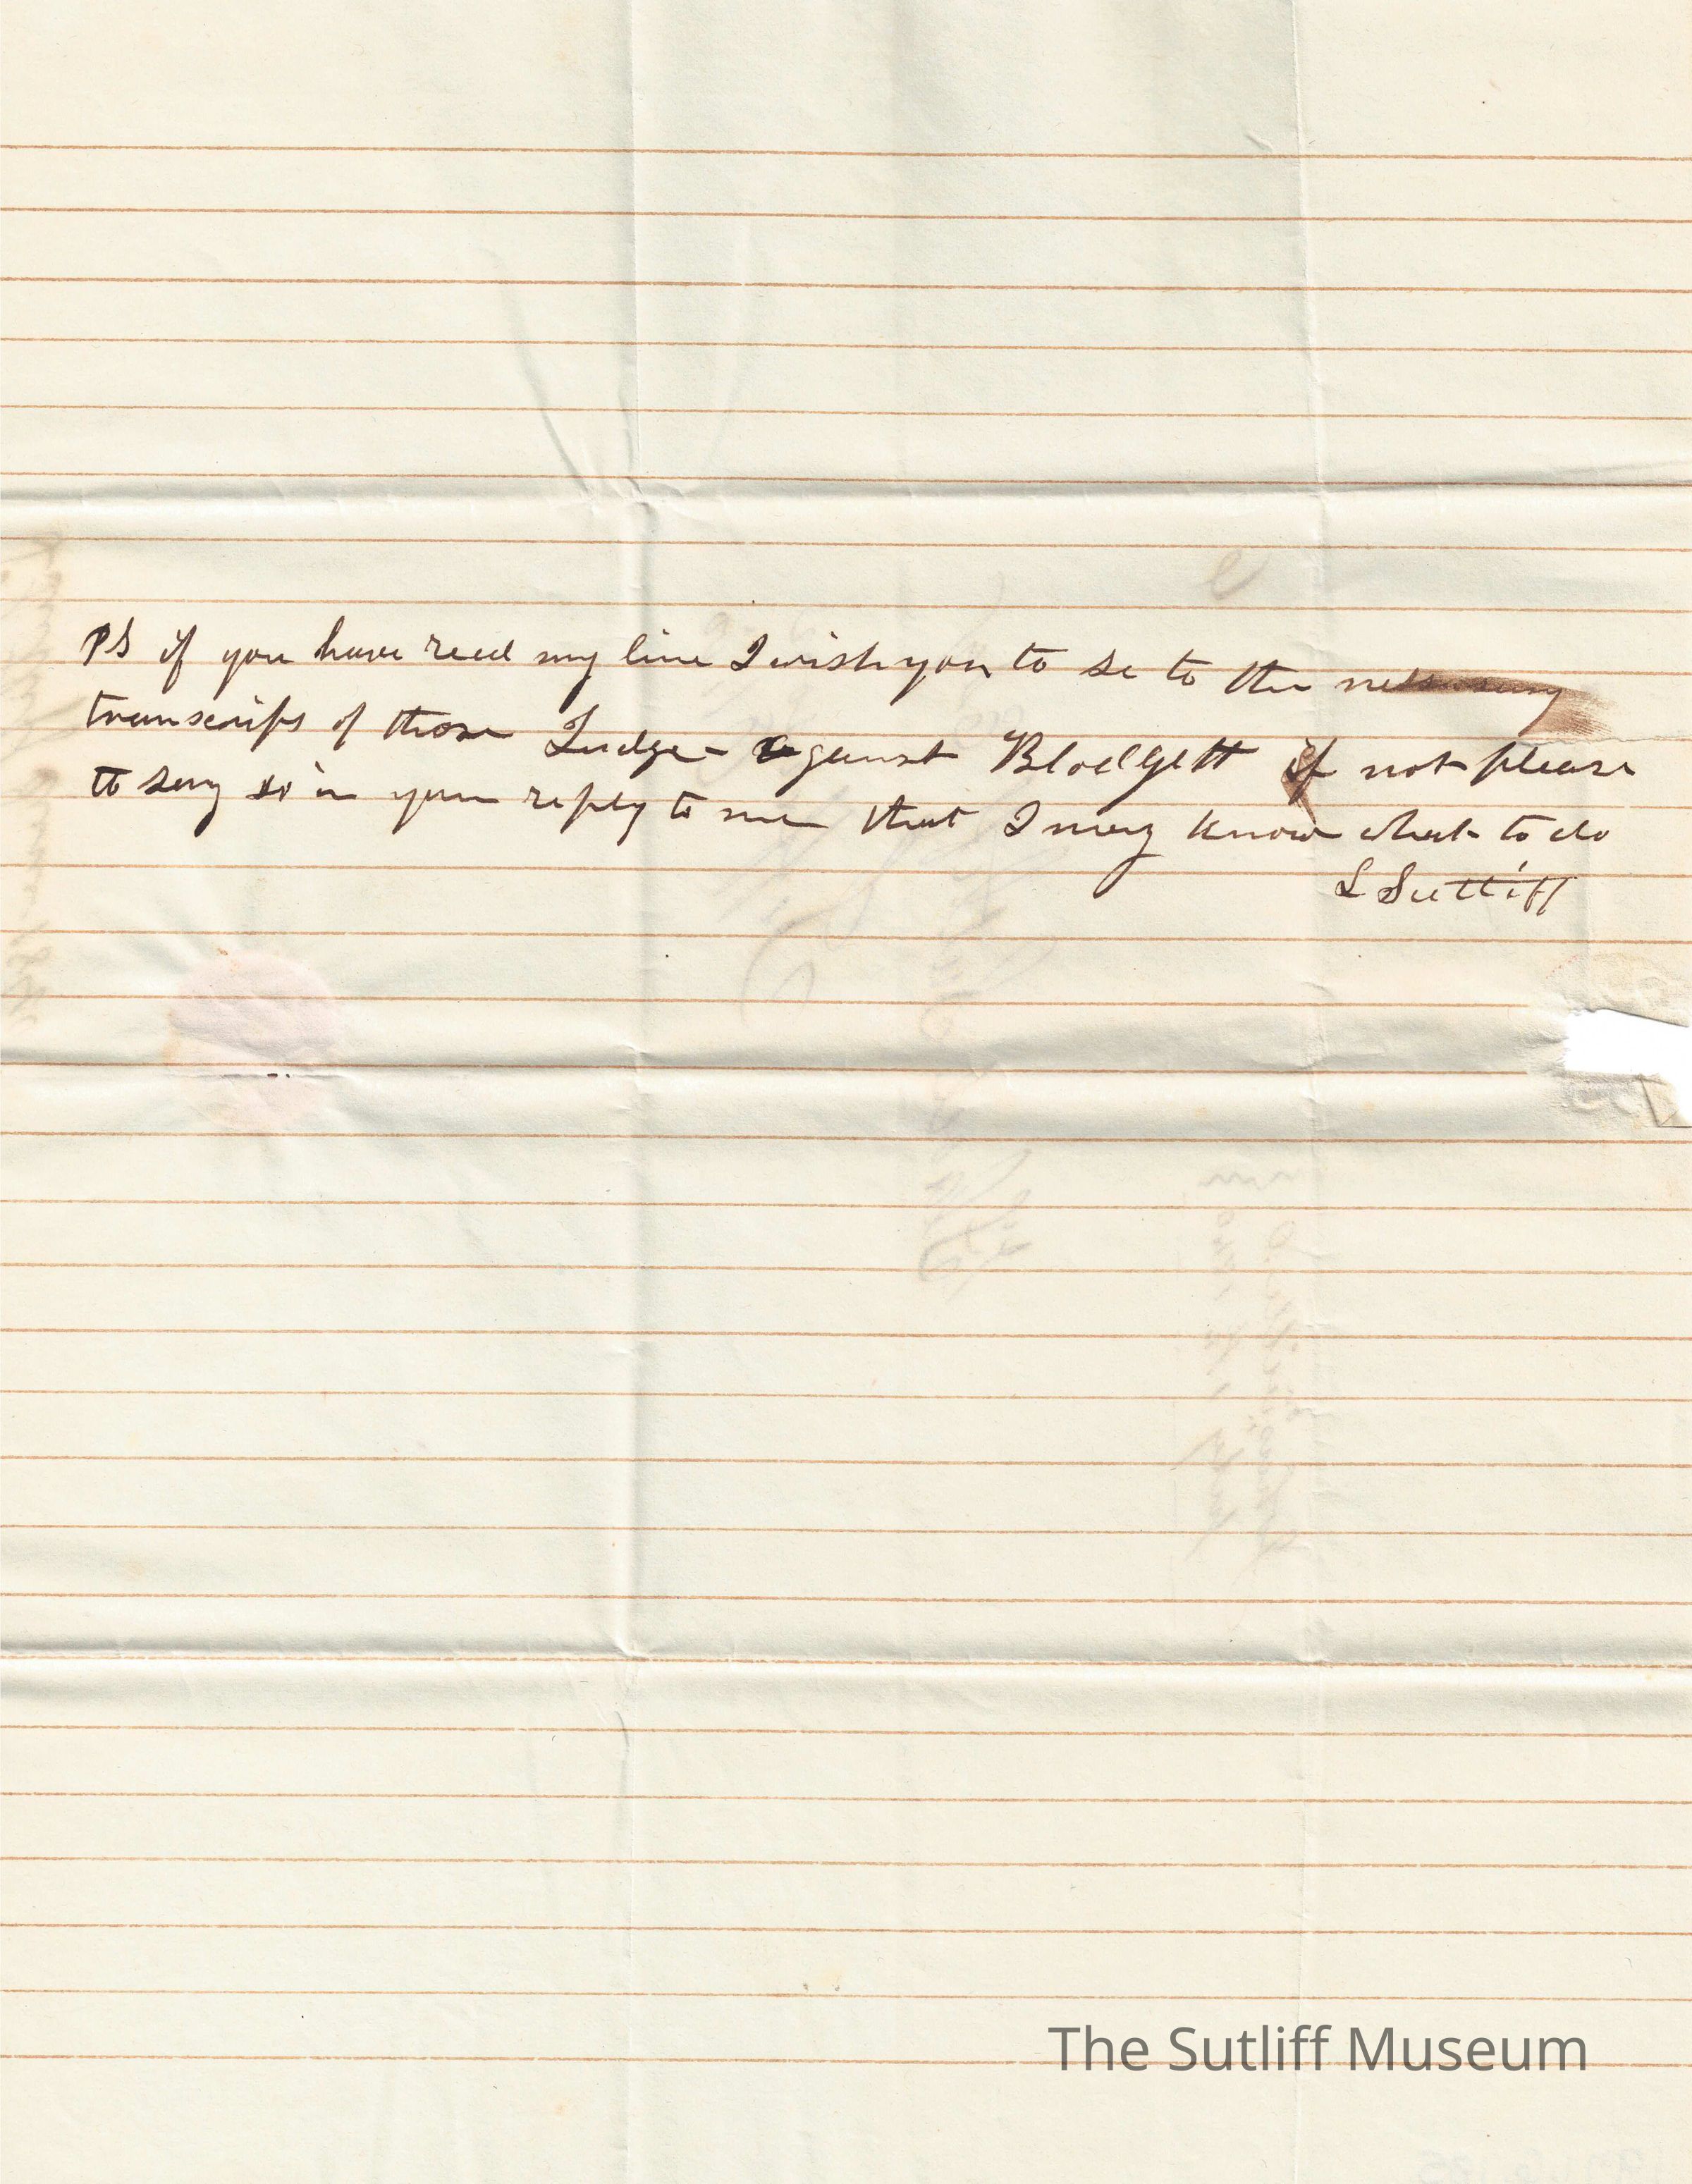 PS if you have recd my line I wish you to se to the nessessary
transcrips of those Judge- against Blodgett if not please
to say so in your reply to me that I may know what to do
L Sutliff
The Sutliff Museum